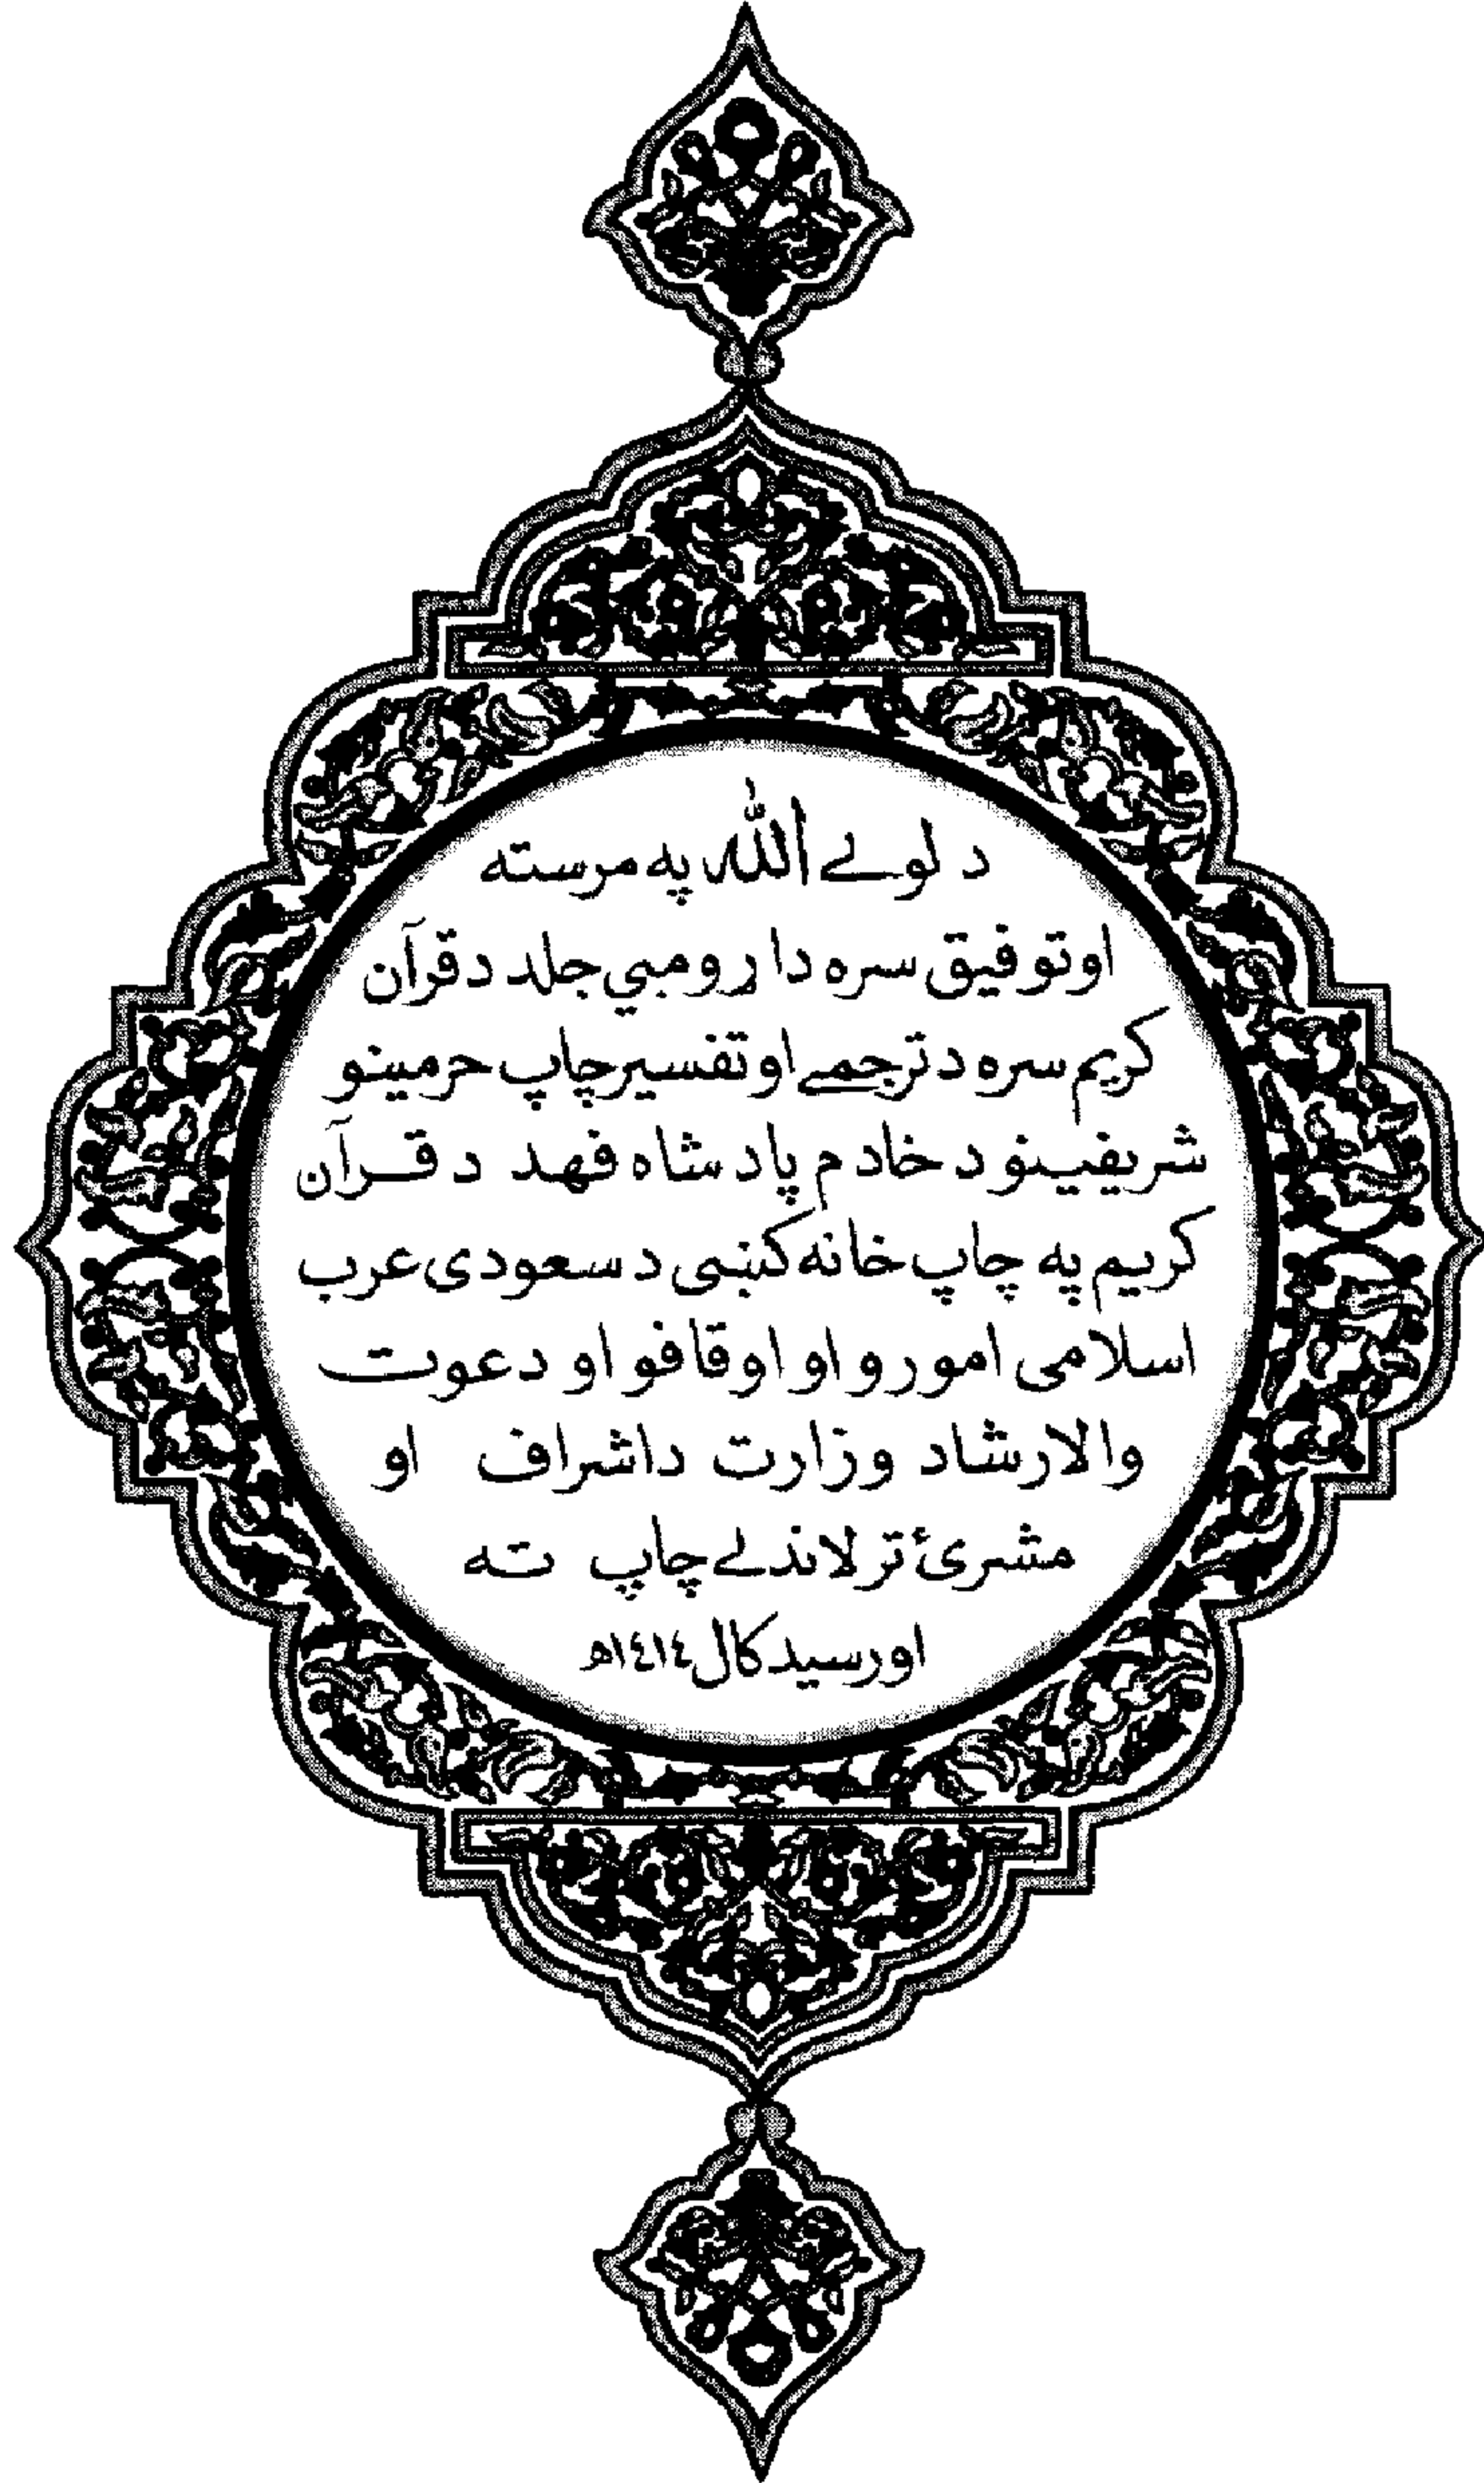 د لوے الله په مرسته
او توفیق سره دا ړومبي جلد د قرآن
کریم سره د ترجمے او تفسیر چاپ حرمینو
شریفینو د خادم پادشاه فهد د قرآن
کریم په چاپ خانه کښی د سعودی عرب
اسلامی امورو او اوقافو او دعوت
والارشاد وزارت د اشراف او
مشرئ تر لاندے چاپ ته
اورسید کال ١٤١٤ھ